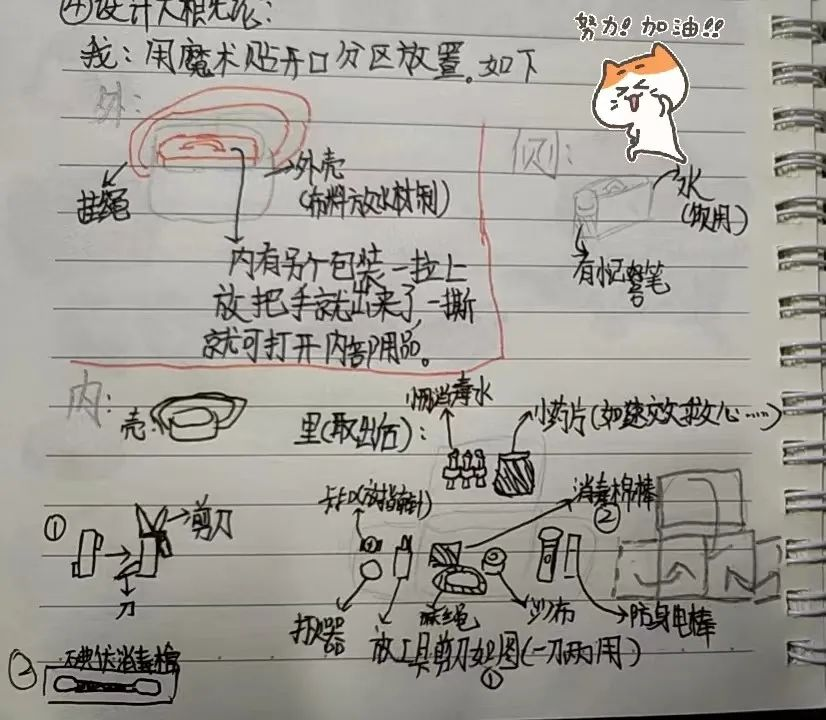 ④设计大概先论:
努力! 加油!!
我: 用魔术贴开口分区放置。如下
外:
侧:
挂绳
外壳
(布料防水材制)
水
(饮用)
内有另个包装一拉上
放把手就出来了,一撕
就可打开内部用品。
有忙记警笔
内:
壳:
里(取出后):
小瓶消毒水
小药片(如速效救心……)
① 剪刀
刀
消毒棉棒
②
打火器
麻绳
纱布
防身电棒
放工具剪刀如图(一刀两用)
①
② 碘伏消毒棉